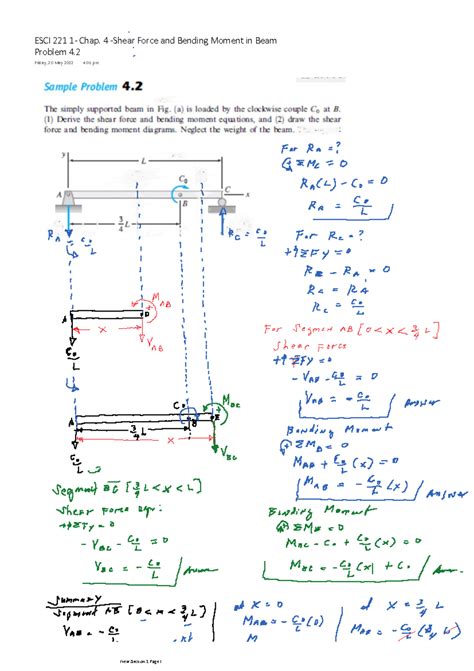 ESCI 221 1- Chap. 4 -Shear Force and Bending Moment in Beam
Problem 4.2
Friday, 20 May 2022 4:01 pm
Sample Problem 4.2
The simply supported beam in Fig. (a) is loaded by the clockwise couple C₀ at B.
(1) Derive the shear force and bending moment equations, and (2) draw the shear
force and bending moment diagrams. Neglect the weight of the beam.
For R_A = ?
ΣM_C = 0
R_A(L) - C₀ = 0
R_A = C₀/L
y
L
C₀
A
B
C
x
3/4 L
R_A = C₀/L
R_C = C₀/L
For R_C = ?
+↑ΣFy = 0
R_C - R_A = 0
R_C = R_A
R_C = C₀/L
M_AB
A
D
x
V_AB
C₀/L
For Segment AB [0 < x < 3/4 L]
Shear Force
+↑ΣFy = 0
- V_AB - C₀/L = 0
V_AB = - C₀/L Answer
C₀
M_BC
A
B
E
3/4 L
x
V_BC
C₀/L
Bending Moment
ΣM_D = 0
M_AB + C₀/L (x) = 0
M_AB = - C₀/L (x) Answer
Segment BC [3/4 L < x < L]
Shear Force eqn:
+↑ΣFy = 0
- V_BC - C₀/L = 0
V_BC = - C₀/L Answer
Bending Moment
ΣM_E = 0
M_BC - C₀ + C₀/L (x) = 0
M_BC = - C₀/L (x) + C₀
Summary
Segment AB [0 < x < 3/4 L]
V_AB = - C₀/L
at x = 0
M_AB = - C₀/L (0)
at x = 3/4 L
M_AB = - C₀/L (3/4 L)
New Section 1 Page 1